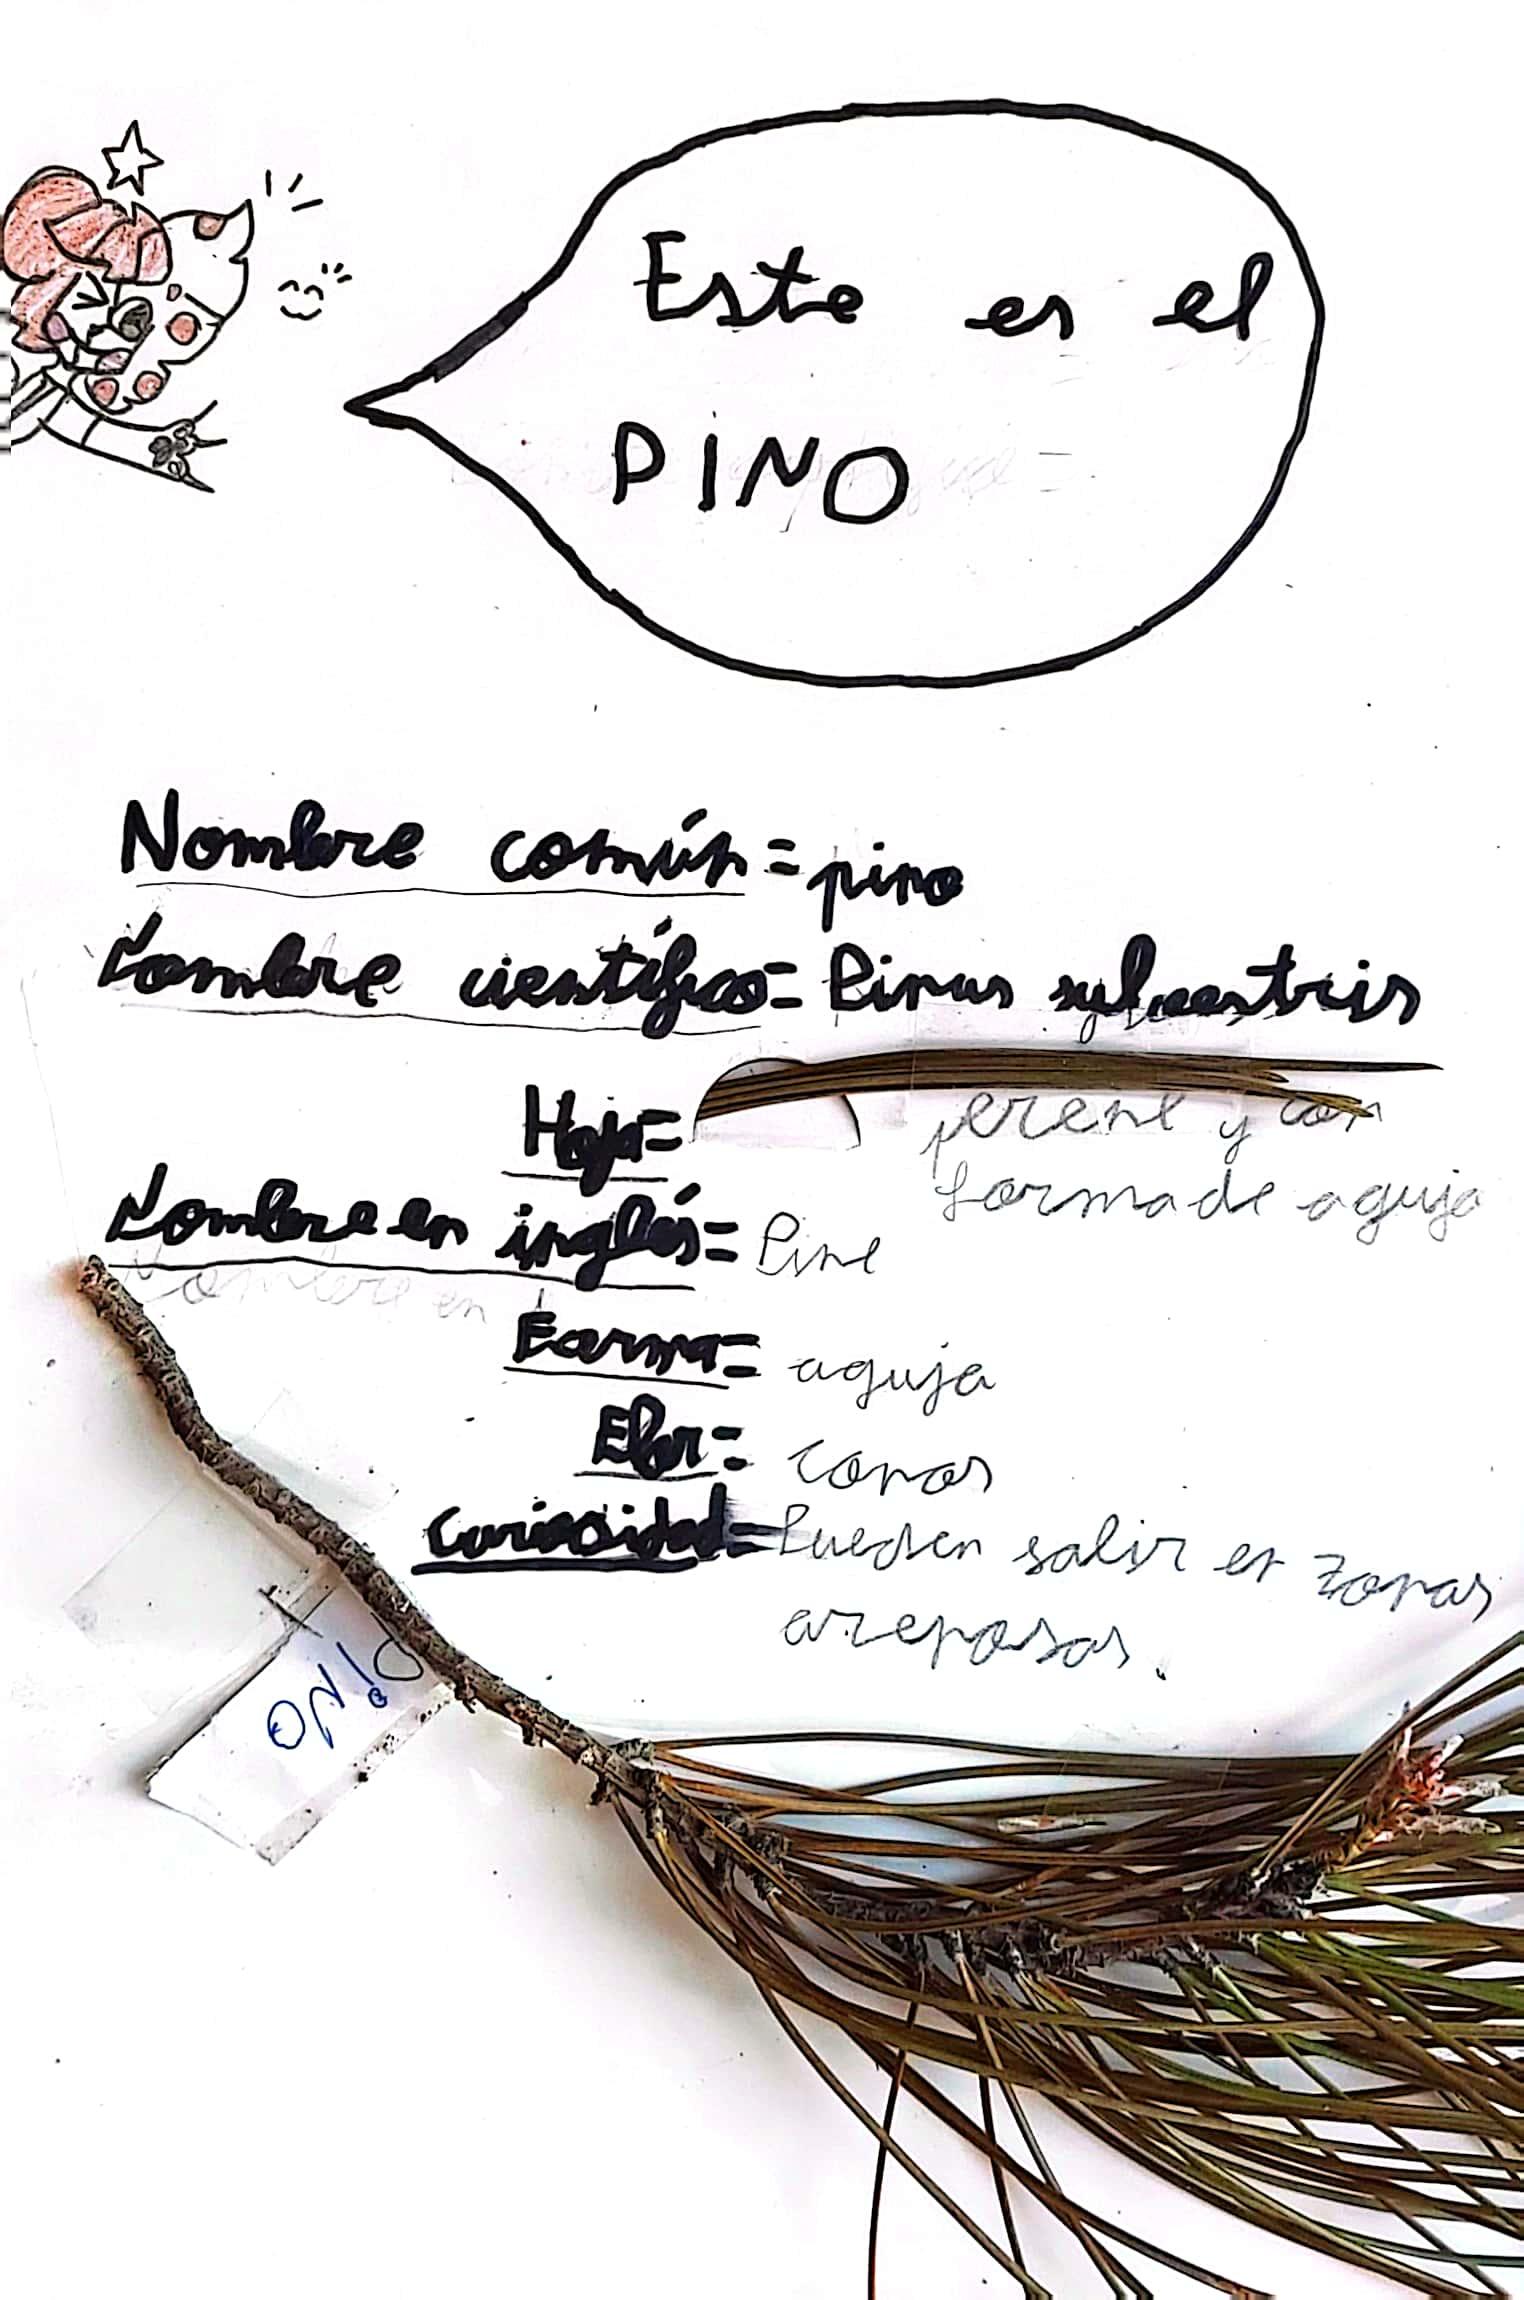 Este es el
PINO
Nombre común = pino
Nombre científico = Pinus sylvestris
Hoja =
perene y con
forma de aguja
Nombre en inglés = Pine
Nombre en
Forma = aguja
Flor = conos
Curiosidad = Pueden salir en zonas
arenosas.
PINO